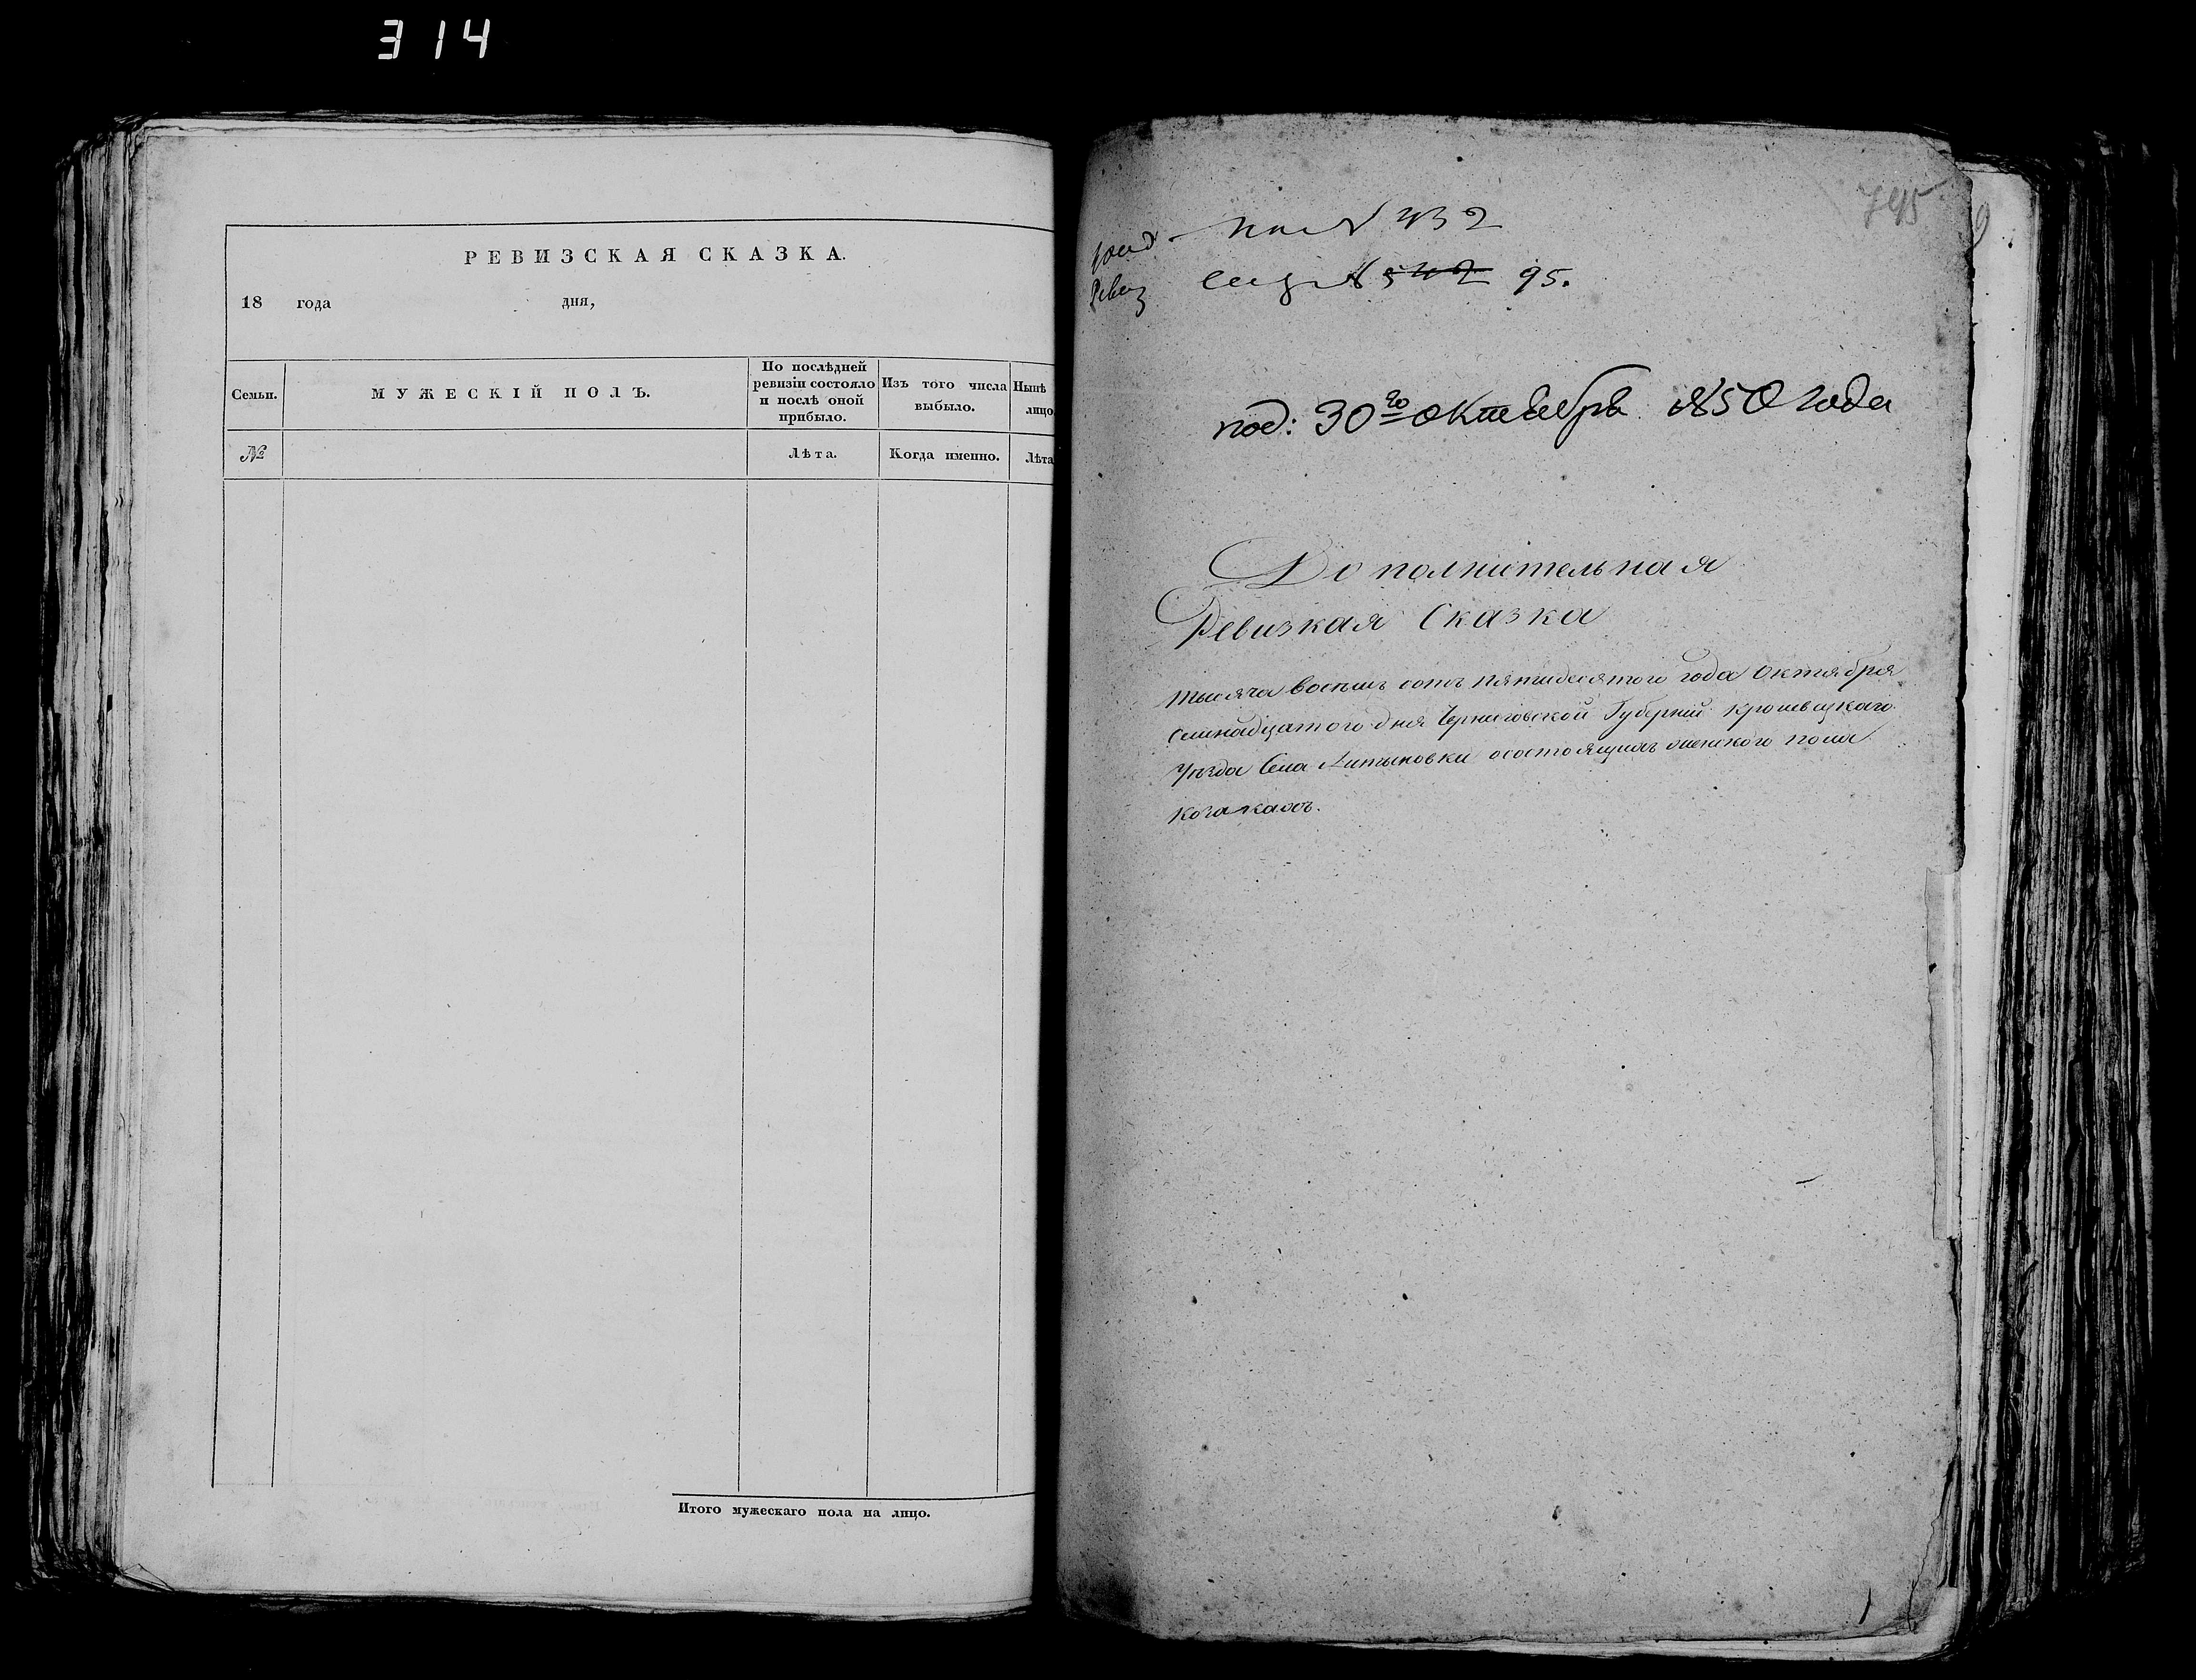 314
РЕВИЗСКАЯ СКАЗКА.
18 года дня,
Семьи.
МУЖЕСКІЙ ПОЛЪ.
По послѣдней ревизіи состояло и послѣ оной прибыло.
Изъ того числа выбыло.
Нынѣ лицо
№
Лѣта.
Когда именно.
Лѣта
Итого мужескаго пола на лицо.
745
по № 432
Ревиз № 542 95.
под: 30го октября 1850 года
Дополнительная
Ревизкая Сказка
тысяча восемь сотъ пятидесятого года октября
семнадцатого дня Черниговской Губерніи Кролевецкаго
Уѣзда Села Литвиновки осостоящихъ женского пола
козакахъ.
1